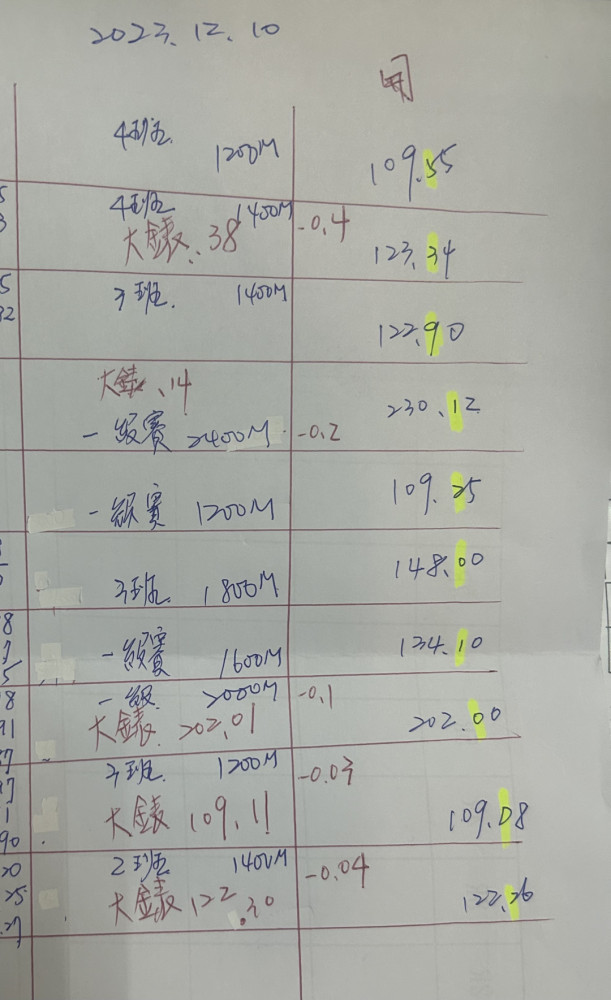 2023.12.10
用
4班
1200M
109.55
4班 1400M
大錶..38 -0.4
123.34
3班. 1400M
122.90
大錶.14
230.12
一級賽 2400M -0.2
109.25
一級賽 1200M
148.00
3班 1800M
134.10
一級賽 1600M
一級 2000M -0.1
大錶 202.01 202.00
3班 1200M -0.03
大錶 109.11 109.08
2班 1400M -0.04
大錶 122.30 122.26